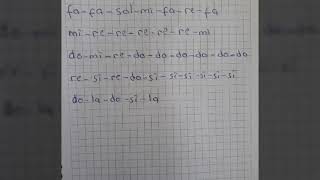 fa-fa-sol-mi-fa-re-fa
mi-re-re-re-re-re-mi
do-mi-re-do-do-do-do-do-do
re-si-re-do-si-si-si-si-si-si
do-la-do-si-la